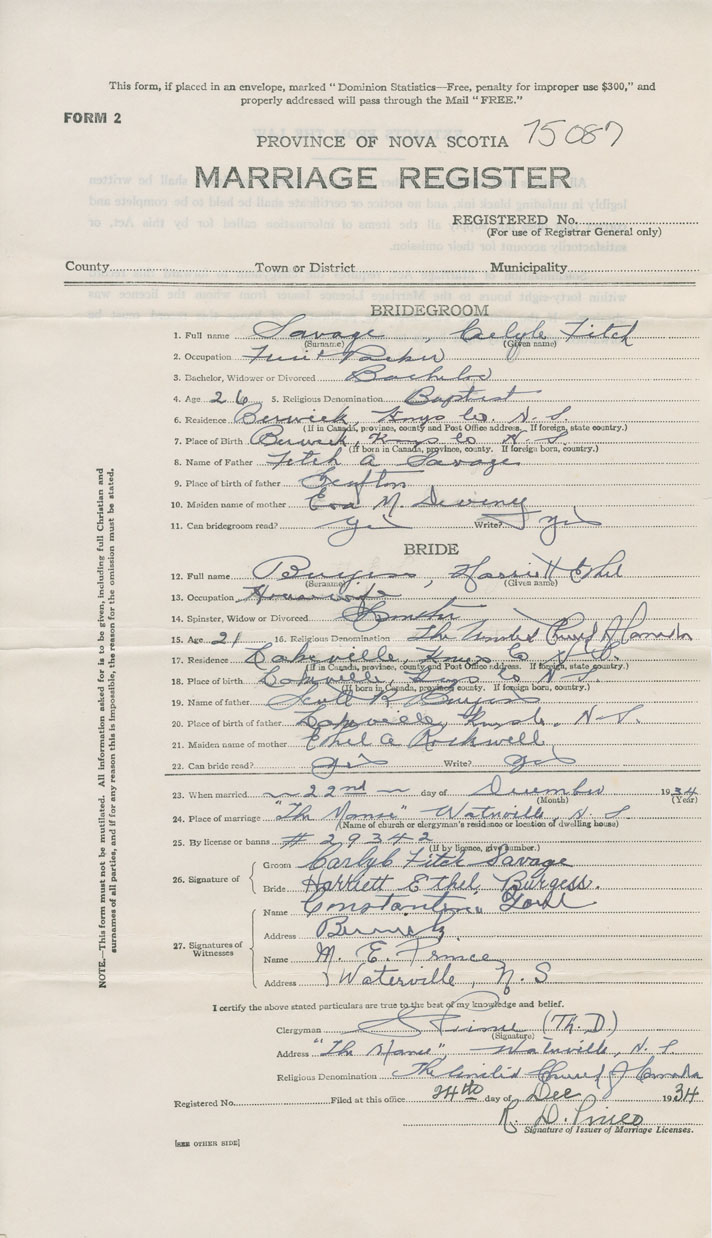 This form, if placed in an envelope, marked "Dominion Statistics—Free, penalty for improper use $300," and
properly addressed will pass through the Mail "FREE."
FORM 2
PROVINCE OF NOVA SCOTIA 75087
MARRIAGE REGISTER
REGISTERED No.
(For use of Registrar General only)
County Town or District Municipality
BRIDEGROOM
1. Full name Savage, Carlyle Fitch
(Surname) (Given name)
2. Occupation Fruit Packer
3. Bachelor, Widower or Divorced Bachelor
4. Age 26 5. Religious Denomination Baptist
6. Residence Berwick, Kings Co. N. S.
(If in Canada, province, county and Post Office address. If foreign, state country.)
7. Place of Birth Berwick, Kings Co N. S.
(If born in Canada, province, county. If foreign born, country.)
8. Name of Father Fitch A. Savage
9. Place of birth of father Grafton
10. Maiden name of mother M.
11. Can bridegroom read? Yes Write? Yes
BRIDE
12. Full name Burgess, Harriett Ethel
(Surname) (Given name)
13. Occupation Housewife
14. Spinster, Widow or Divorced Spinster
15. Age 21 16. Religious Denomination The United Church of Canada
17. Residence Lakeville, Kings Co N. S.
(If in Canada, province, county and Post Office address. If foreign, state country.)
18. Place of birth Lakeville, Kings Co N. S.
(If born in Canada, province county. If foreign born, country.)
19. Name of father Scott R. Burgess
20. Place of birth of father Lakeville, N. S.
21. Maiden name of mother Ethel A Rockwell
22. Can bride read? Yes Write? Yes
23. When married 22nd day of December 1934
(Month) (Year)
24. Place of marriage "The Manse" Waterville, N. S
(Name of church or clergyman's residence or location of dwelling house)
25. By license or banns # 29342
(If by licence, give number.)
26. Signature of
Groom Carlyle Fitch Savage
Bride Harriett Ethel Burgess.
27. Signatures of
Witnesses
Name Constantine
Address Berwick
Name M. E. Prince
Address Waterville, N. S
I certify the above stated particulars are true to the best of my knowledge and belief.
Clergyman Prince (Th. D.)
(Signature)
Address "The Manse", Waterville, N. S.
Religious Denomination The United Church of Canada
Registered No. Filed at this office 24th day of Dec 1934
R. D. Pineo
Signature of Issuer of Marriage Licenses.
[SEE OTHER SIDE]
NOTE.—This form must not be mutilated. All information asked for is to be given, including full Christian and
surnames of all parties, and if for any reason this is impossible, the reason for the omission must be stated.